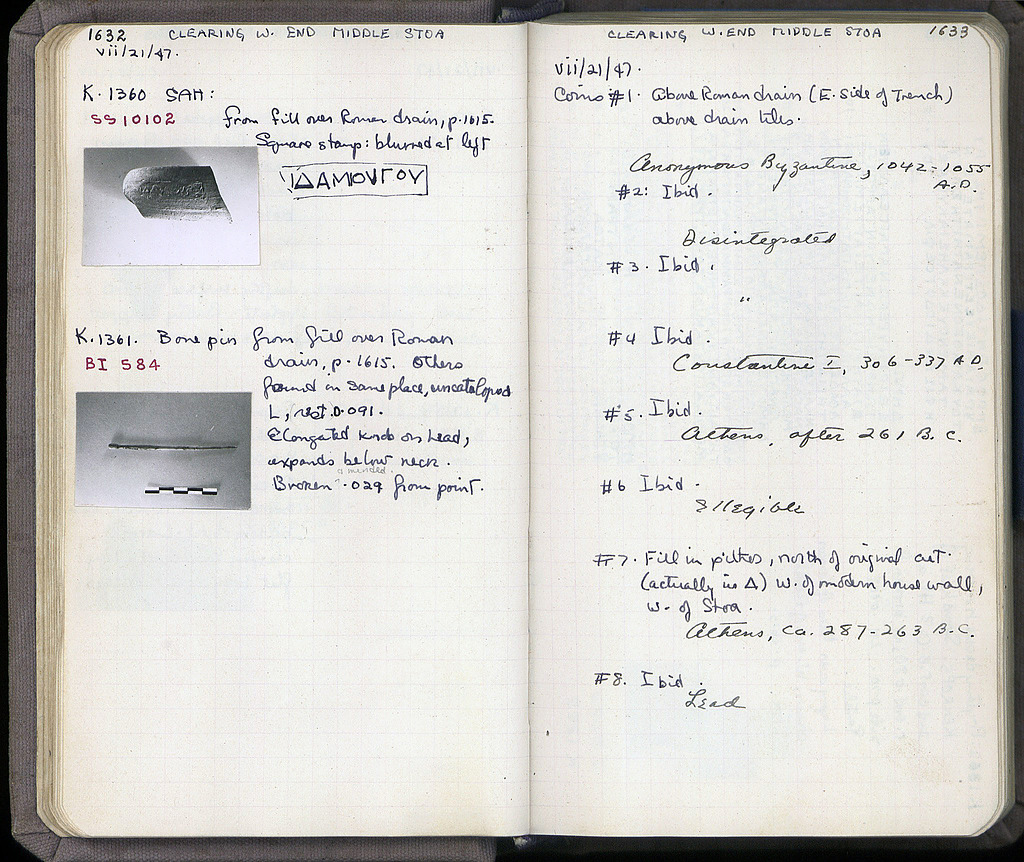 1632 CLEARING W. END MIDDLE STOA
vii/21/47.
K. 1360 SAH:
SS 10102
from fill over Roman drain, p. 1615.
Square stamp: blurred at left
ΙΔΑΜΟΥΓΟΥ
K. 1361. Bone pin from fill over Roman
BI 584
drain, p. 1615. Others
found in same place, uncataloged
L, rest. 0.091.
Elongated knob on head,
expands below neck.
Broken .029 from point.
CLEARING W. END MIDDLE STOA 1633
vii/21/47.
Coins #1. Above Roman drain (E. side of Trench)
above drain tiles.
Anonymous Byzantine, 1042-1055
A.D.
#2: Ibid.
Disintegrated
#3. Ibid.
"
#4 Ibid.
Constantine I, 306-337 A.D.
#5. Ibid.
Athens, after 261 B.C.
#6 Ibid.
Illegible
#7. Fill in pithos, north of original cut.
(actually in Δ) W. of modern house wall,
W. of Stoa.
Athens, ca. 287-263 B.C.
#8. Ibid.
Lead